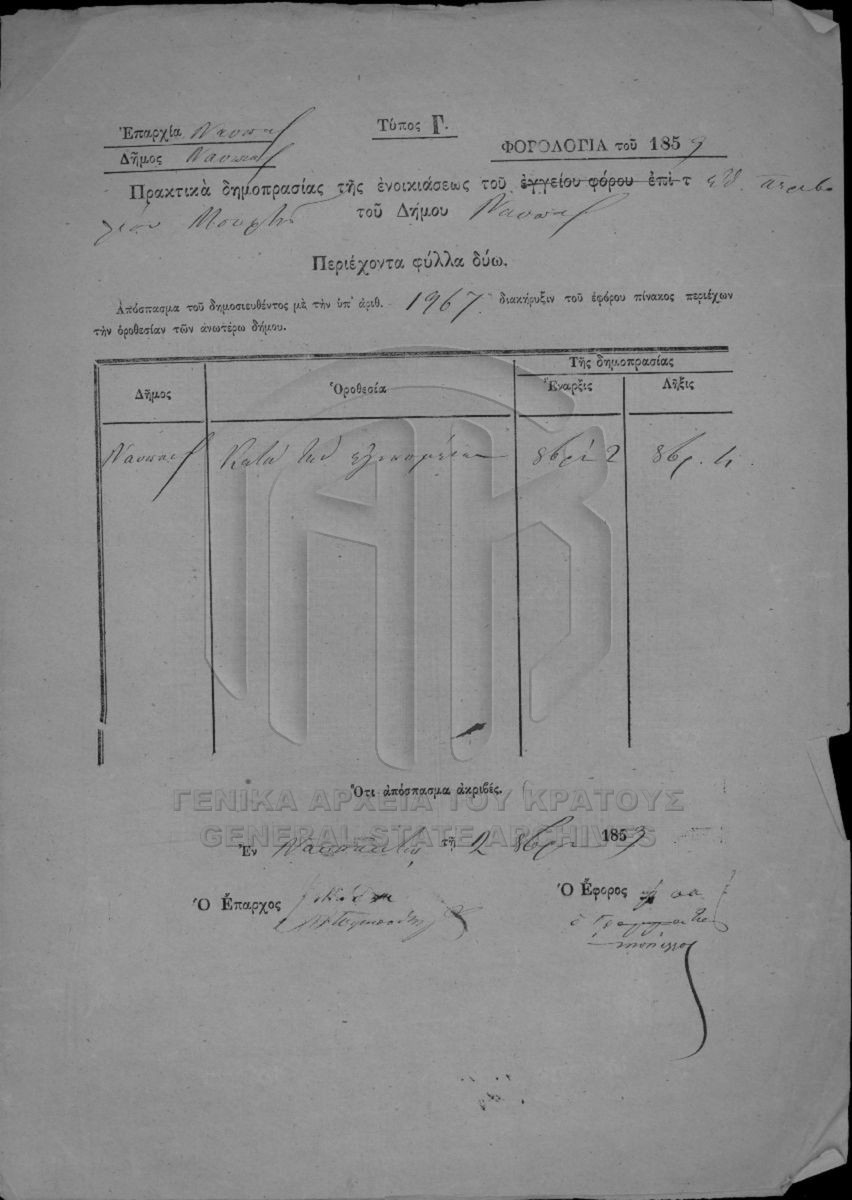 Ἐπαρχία Ναυπακ
Τύπος Γ.
Δῆμος Ναυπακ
ΦΟΡΟΛΟΓΙΑ τοῦ 1859
Πρακτικὰ δημοπρασίας τῆς ἐνοικιάσεως τοῦ ἐγγείου φόρου ἐπὶ τ ἐθ. περιβο
λίου τοῦ Δήμου Ναυπακ
Περιέχοντα φύλλα δύω.
Ἀπόσπασμα τοῦ δημοσιευθέντος μὲ τὴν ὑπ' ἀριθ. 1967 διακήρυξιν τοῦ ἐφόρου πίνακος περιέχων
τὴν ὁροθεσίαν τῶν ἀνωτέρω δήμου.
Τῆς δημοπρασίας
Δῆμος Ὁροθεσία Ἔναρξις Λῆξις
Ναυπακ Κατὰ 8βρί 2 8βρ. 4
Ὅτι ἀπόσπασμα ἀκριβές.
ΓΕΝΙΚΑ ΑΡΧΕΙΑ ΤΟΥ ΚΡΑΤΟΥΣ
GENERAL STATE ARCHIVES
Ἐν Ναυπάκτῳ τῇ 2 8βρίου 1859
Ὁ Ἔπαρχος
Ὁ Ἔφορος